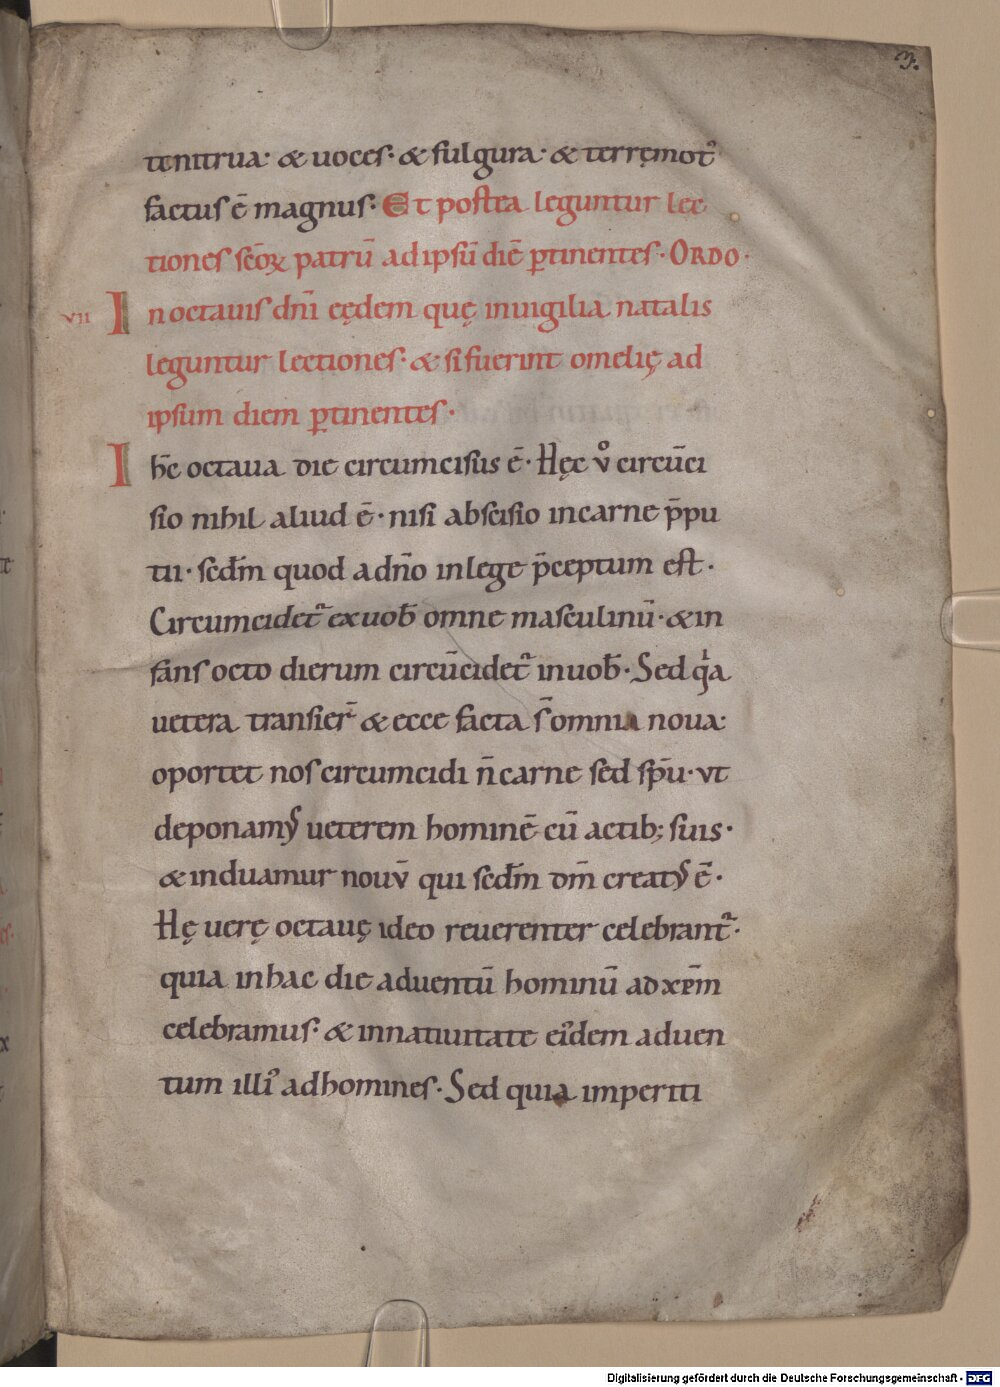 3.
tenitrua· & uoces· & fulgura· & terręmot᷒
factus ē magnus· Et postea leguntur lec
tiones scōꝝ patrū ad ipsū diē ꝑtinentes· ORDO·
VII In octauis dn̄i eędem quę in uigilia natalis
leguntur lectiones· & si fuerint omelię ad
ipsum diem ꝑtinentes·
I hc̄ octaua die circumcisus ē· Hęc v̊ circūci
sio nihil aliud ē· nisi abscisio in carne p̄pu
tii· scd̄m quod a dn̄o in lege p̄ceptum est·
Circumcidet᷑ ex uob̄ omne masculinū· & in
fans octo dierum circūcidet᷑ in uob̄· Sed qͥa
uetera transier᷑ & ecce facta s̄ omnia noua·
oportet nos circumcidi n̄ carne sed sp̄u· vt
deponamꝰ ueterem hominē cū actib; suis·
& induamur nouv̄ qui scd̄m dm̄ creatꝰ ē·
Hę uerę octauę ideo reuerenter celebrant᷑·
quia in hac die aduentū hominū ad xp̄m
celebramus· & in natiuitate ei᷒dem aduen
tum illi᷒ ad homines· Sed quia imperiti
Digitalisierung gefördert durch die Deutsche Forschungsgemeinschaft - DFG